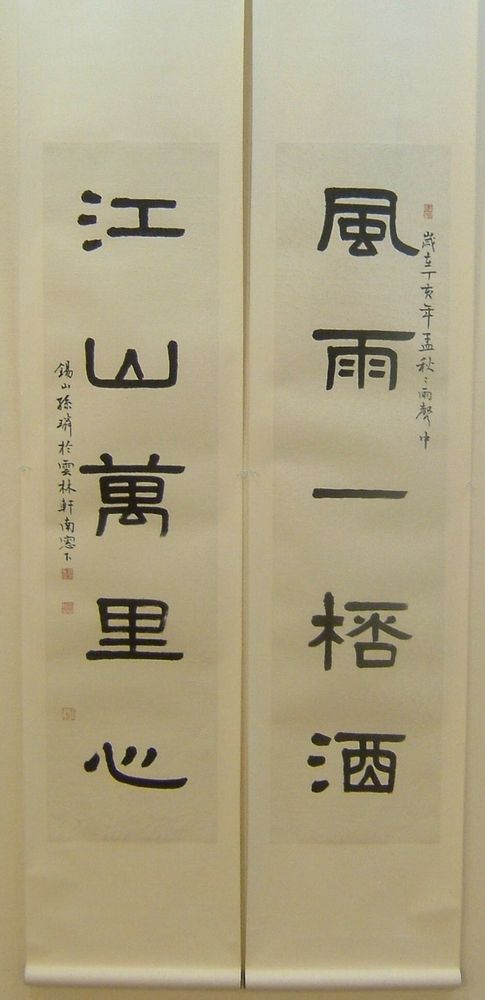 風雨一桮酒
歲在丁亥年孟秋〻雨聲中
江山萬里心
錫山孫濟於雲林軒南窗下